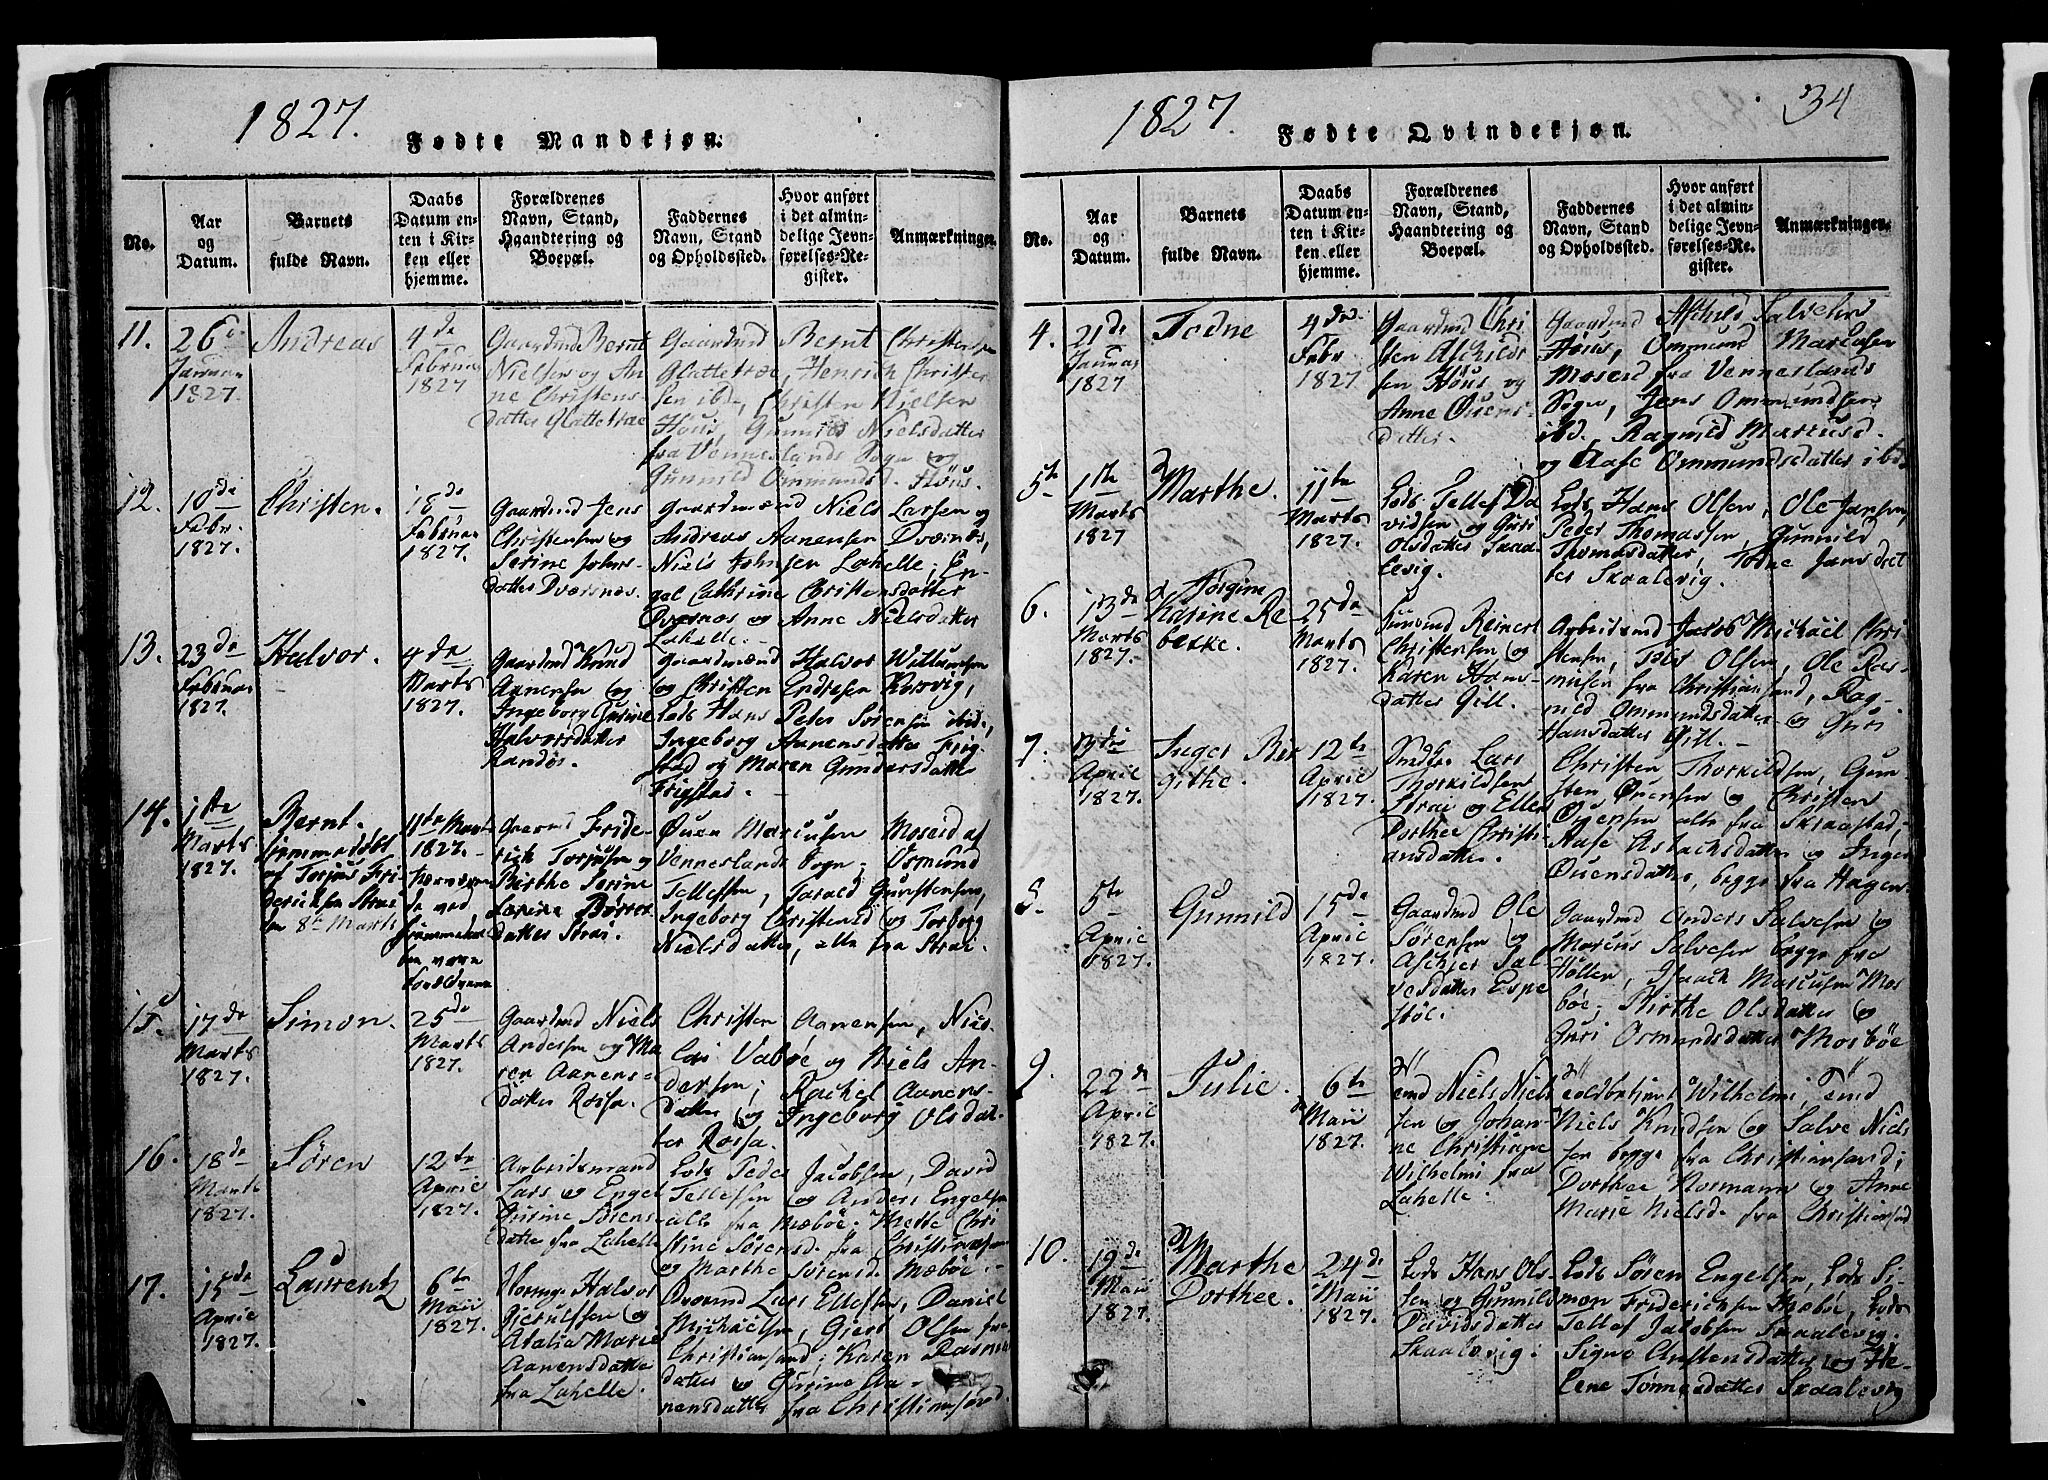 1827.
Fødte Mandkjøn.
No.
Aar
og
Datum.
Barnets
fulde Navn.
Daabs
Datum en-
ten i Kir-
ken eller
hjemme.
Forældrenes
Navn, Stand,
Haandtering og
Boepæl.
Faddernes
Navn, Stand
og Opholdssted.
Hvor anført
i det almin-
delige Jevn-
førelses-Re-
gister.
Anmærkninger.
11.
26
Januar
1827.
Andreas
4de
Februar
1827
Gaardmd Bernt
Nielsen og An
ne Christens
datter Glattetræ
Gaardmd Bernt Christensen
Glattetræ, Henrich Christen
sen ibd, Christen Nielsen
Hous Gunnild Nielsdatter
fra Venneslands Sogn og
Gunnild Ommundsd. Høus.
12.
10de
Febr.
1827.
Christen.
18de
Februar
1827.
Gaardmd Jens
Christensen og
Serine Johns
datter Dværsnes.
Gaardmænd Niels Larsen og
Andreas Aanensen Dværnes,
Niels Johnsen Lahelle; En-
gel Cathrine Christensdatter
Dversnes og Anne Nielsdatter
Lahelle.
13.
23de
Februar
1827.
Halvor.
4de
Marts
1827.
Gaardmd Knud
Aanensen og
Ingeborg Gurine
Halvorsdatter
Randøe.
Gaardmænd Halvor Willumsen
og Christen Endresen Korsvig,
Lods Hans Peter Sørensen ibid,
Ingeborg Aanensdatter Frig-
stad og Maren Gundersdatter
Frigstad.
14.
1ste
Marts
1827.
Bernt.
hjemmedøbt
af Torjus Fri
derichsen Straie
den 8de Marts
11te Marts
1827.
Gaardmd Fride-
rick Torjusen og
Birthe Serine
Larine Børres
datter Strai.
Ouen Marcusen Moseid af
Venneslands Sogn; Osmund
Tellefsen, Tarald Gunstensen,
Ingeborg Christensd og Torborg
Nielsdatter, alle fra Strai.
15
17de
Marts
1827.
Simon.
25de
Marts
1827.
Gaardmd Niels
Andersen og Ma
ren Aanens-
datter Rossa.
Christen Aanensen, Nico
lai Vaboe og Niels An-
dersen; Rachel Aanens-
datter og Ingeborg Olsdat-
ter Rossa.
16.
18de
Marts
1827.
Søren
12te
April
1827.
Arbeidsmand
Lars og Engel
Gurine Sørens-
datter fra Lahelle
Lods Peder Jacobsen, David
Tellefsen og Anders Engelsen
alle fra Mebøe; Mette Chri
stine Sørensd fra Christiansand
og Marthe Sørensd Mæbøe.
17.
15de
April
1827.
Laurentz
6te
Maii
1827.
Halvor
Gjerulfsen og
Atalia Marie
Aanensdatter
fra Lahelle.
Lars Ellefsen, Daniel
Michaelsen, Giert Olsen fra
Christiansand; Karen Rasmus
datter og Gurine Aa-
nensdatter fra Christiansand.
1827.
34
Fødte Qvindekjøn.
No.
Aar
og
Datum.
Barnets
fulde Navn.
Daabs
Datum en-
ten i Kir-
ken eller
hjemme.
Forældrenes
Navn, Stand,
Haandtering og
Boepæl.
Faddernes
Navn, Stand
og Opholdssted.
Hvor anført
i det almin-
delige Jevn-
førelses-Re-
gister.
Anmærkninger.
4.
21de
Januar
1827
Todne
4de
Febr
1827
Gaardmd Chri
sten Aschilds
sen Høus og
Anne Ouens-
datter.
Gaardmd Aschild Salvesen
Høus, Ommund Marcusen
Moseid fra Venneslands
Sogn, Jens Ommundsen
ibd. Ragnild Marcusd.
og Aase Ommundsdatter ibid
5te
1te
Marts
1827
Marthe.
11te
Marts
1827.
Lods Tellef Da
vidsen og Guri
Olsdatter Skaa-
levig.
Lods Hans Olsen, Ole Jansen,
Peder Thomassen, Gunnild
Thomasdatter, Todne Jansdat
ter Skaalevig.
6.
13de
Marts
1827.
Torgine
Karine Re
bekke.
25de
Marts
1827.
Reinert
Christensen og
Karen Hans-
datter Gill.
Arbeidsmd Jacob Michael Chri-
stensen, Peter Olsen, Ole Ras-
musen fra Christiansand, Rag-
nild Ommundsdatter og Guri
Hansdatter Gill.
7.
April
1827.
Inger Bir
githe.
12te
April
1827.
Lars
Thorkildsen
Strai og Ellen
Dorthee Christi-
ansdatter.
Christen Thorkildsen, Gun-
sten Ouensen og Christen
Ougensen alle fra Skraastad,
Aase Aslachsdatter og Inger
Ouensdatter, begge fra Hagen.
8.
5te
April
1827.
Gunnild
15de
April
1827.
Gaardmd Ole
Sørensen og
Aschier Sal-
vesdatter Espe
støe.
Gaardmd Anders Salvesen og
Marcus Salvesen begge fra
Hollen, Isaach Marcusen Mos
bøe; Birthe Olsdatter og
Guri Osmundsdatter Mosbøe
9.
22de
April
1827.
Julie.
6te
Maii
1827.
Niels Niel
sen og Johan-
ne Christiane
Wilhelmi fra
Lahelle.
Wilhelmi,
Niels Knudsen og Salve Niels
sen begge fra Christiansand;
Dorthee Normann og Anne
Marie Nielsd. fra Christiansand
10.
19de
Maii
1827.
Marthe
Dorthee.
24de
Maii
1827.
Lods Hans Ols-
sen og Gunnild
Davidsdatter
Skaalevig.
Lods Søren Engelsen, Lods Si-
mon Friderichsen Mæbøe, Lods
Tellef Jacobsen Skaalevig.
Signe Christensdatter og He-
lene Tønnesdatter Skaalevig